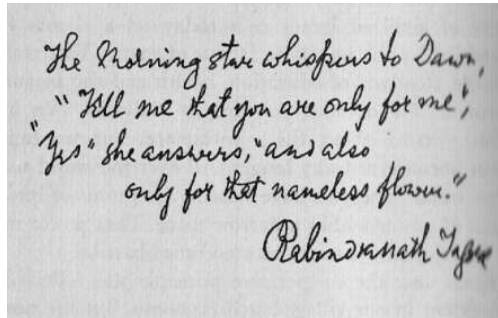 The Morning star whispers to Dawn,
"Tell me that you are only for me",
"Yes" she answers, "and also
only for that nameless flower."
Rabindranath Tagore